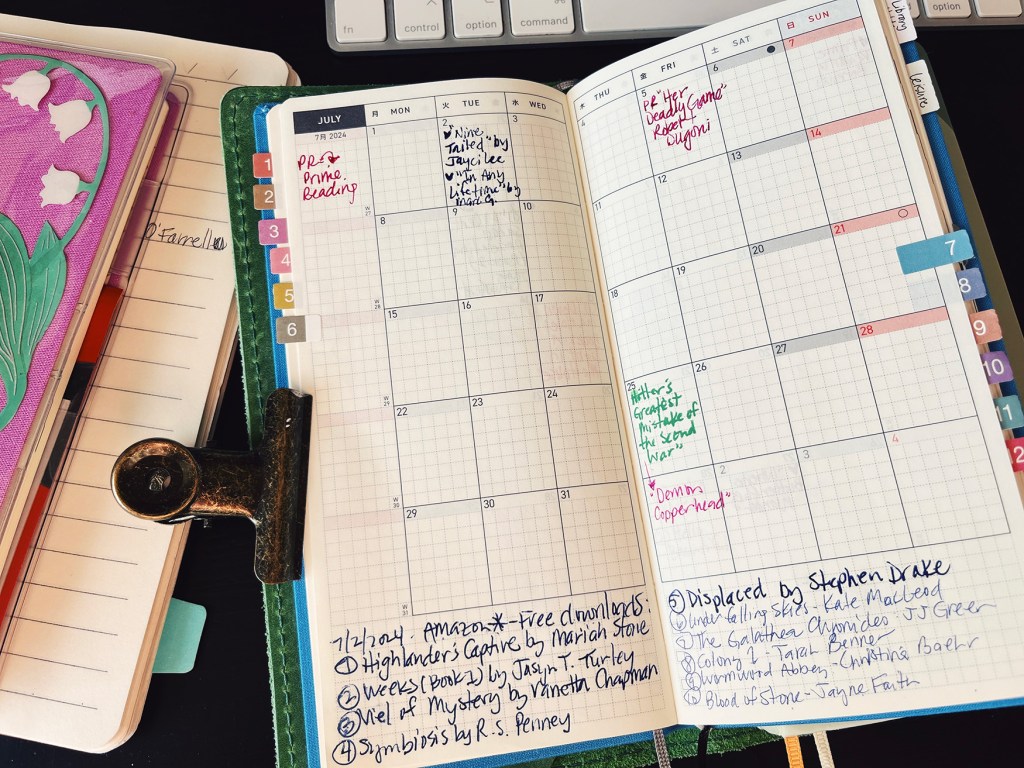 fn
control
option
command
option
Library
Leisure
O'Farrell
JULY
7月 2024
月 MON
火 TUE
水 WED
木 THU
金 FRI
土 SAT
日 SUN
PR->
Prime
Reading
1
2
"Nine
Tailed" by
Jayci Lee
"In Any
Lifetime" by
3
4
5
PR "Her
Deadly Game"
Robert
Dugoni
6
7
W 27
8
9
10
11
12
13
14
W 28
15
16
17
18
19
20
21
W 29
22
23
24
25
Hitler's
Greatest
Mistake of
the Second
War"
26
27
28
W 30
29
30
31
"Demon
Copperhead"
2
3
4
W 31
1
2
3
4
5
6
7
8
9
10
1
2
7/2/2024. Amazon*-Free downloads:
① Highlander's Captive by Mariah Stone
② Weeks (Book 1) by Jasyn T. Turley
③ Viel of Mystery by Vanetta Chapman
④ Symbiosis by R.S. Penney
⑤ Displaced by Stephen Drake
⑥ Under Falling Skies - Kate MacLeod
⑦ The Galathea Chronicles - JJ Green
⑧ Colony 1 - Tarah Benner
⑨ Wormwood Abbey - Christina Baehr
⑩ Blood of Stone - Jayne Faith